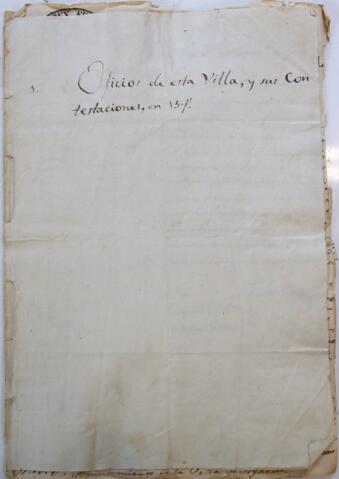 3. Oficios de esta Villa, y sus Con
testaciones, en
de la Villa